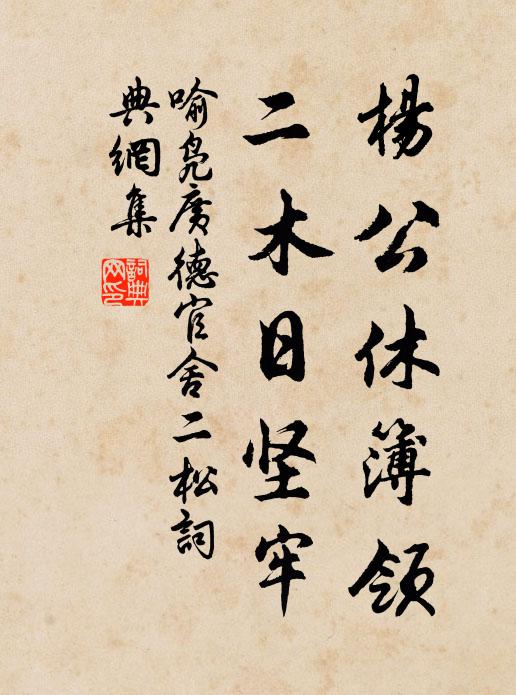 楊公休簿領
二木日坚牢
喻凫廣德官舍二松詞
典網集
詞典網印